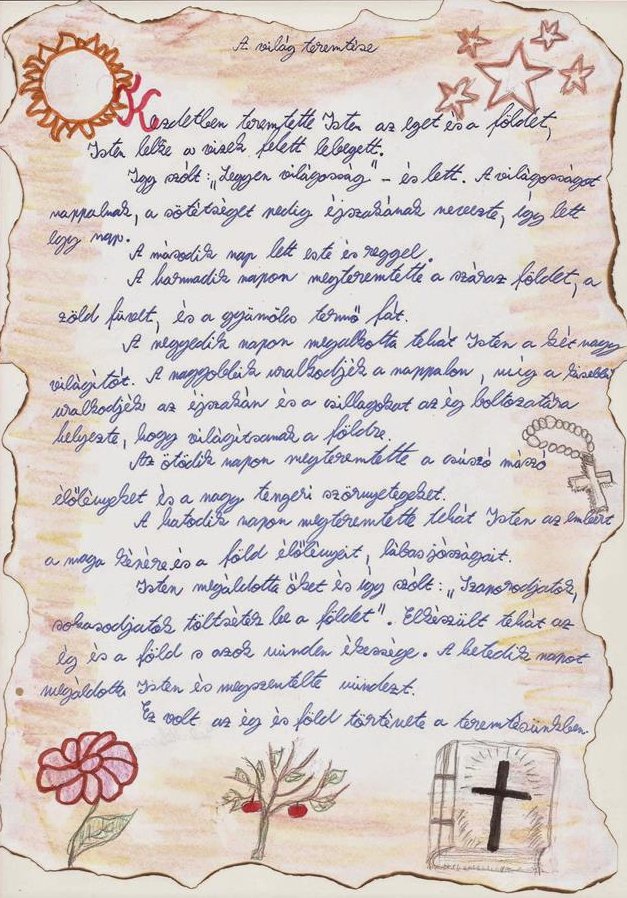 A világ teremtése
Kezdetben teremtette Isten az eget és a földet,
Isten lelke a vizek felett lebegett.
Igy szólt: „Legyen világosság" – és lett. A világosságot
nappalnak, a sötétséget pedig éjszakának nevezte, így lett
egy nap.
A második nap lett este és reggel.
A harmadik napon megteremtette a száraz földet, a
zöld füvet, és a gyümölcs termő fát.
A negyedik napon megalkotta tehát Isten a két nagy
világítót. A nagyobbik uralkodjék a nappalon, míg a kisebbik
uralkodjék az éjszakán és a csillagokat az ég boltozatára
helyezte, hogy világítsanak a földre.
Az ötödik napon megteremtette a csúszó mászó
élőlényeket és a nagy tengeri szörnyetegeket.
A hatodik napon megteremtette tehát Isten az embert
a maga képére és a föld élőlényeit, lábasjószágait.
Isten megáldotta őket és így szólt: „Szaporodjatok,
sokasodjatok töltsétek be a földet". Elkészült tehát az
ég és a föld s azok minden ékessége. A hetedik napot
megáldotta Isten és megszentelte mindezt.
Ez volt az ég és föld története a teremtésünkben.